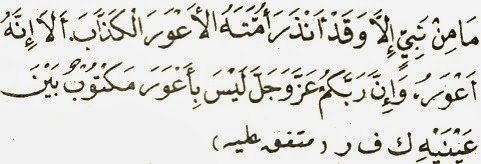 مَا مِنْ نَبِيٍّ إِلَّا وَقَدْ أَنْذَرَ أُمَّتَهُ الأَعْوَرَ الْكَذَّابَ. أَلَا إِنَّهُ
أَعْوَرُ. وَإِنَّ رَبَّكُمْ عَزَّ وَجَلَّ لَيْسَ بِأَعْوَرَ مَكْتُوْبٌ بَيْنَ
عَيْنَيْهِ ك ف ر (متفق عليه)